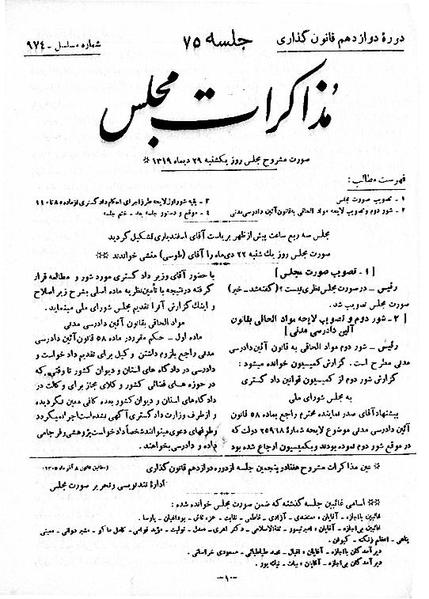 دورهٔ دوازدهم قانون گذاری
جلسه ۷۵
شماره مسلسل - ۹۷٤
مذاکرات مجلس
صورت مشروح مجلس روز یکشنبه ۲۹ دیماه ۱۳۱۹ *
فهرست مطالب :
۱ - تصویب صورت مجلس
۲ - شور دوم و تصویب لایحه مواد الحاقی به قانون آئین دادرسی مدنی
۳ - بقیه شور اول لایحه طرز اجرای احکام دادگستری از ماده ۸ تا ۱۱۰
٤ - موقع و دستور جلسه بعد - ختم جلسه
مجلس سه ربع ساعت پیش از ظهر بریاست آقای اسفندیاری تشکیل گردید
صورت مجلس روز یك شنبه ۲۲ دی ماه را آقای (طوسی) منشی خواندند **
[ ۱ - تصویب صورت مجلس ]
رئیس - در صورت مجلس نظری نیست ؟ (گفته شد - خیر)
صورت مجلس تصویب شد.
[ ۲ - شور دوم و تصویب لایحه مواد الحاقی بقانون
آئین دادرسی مدنی ]
رئیس - شور دوم مواد الحاقی به قانون آئین دادرسی
مدنی مطرح است . گزارش کمیسیون خوانده میشود :
گزارش شور دوم از کمیسیون قوانین دادگستری
به مجلس شورای ملی
پیشنهاد آقای صدر نماینده محترم راجع بماده ۵۸ قانون
آئین دادرسی مدنی موضوع لایحه شماره ۲۵۹٦۸ دولت که
در موقع شور دوم نموده بودند و بکمیسیون ارجاع شده بود
با حضور آقای وزیر دادگستری مورد شور و مطالعه قرار
گرفته در نتیجه با تأمین نظریه ماده اصلی بشرح زیر اصلاح
و اینك گزارش آنرا تقدیم مجلس شورای ملی مینماید.
مواد الحاقی بقانون آئین دادرسی مدنی
ماده اول - حکم مقرر در ماده ۵۸ قانون آئین دادرسی
مدنی راجع بلزوم داشتن وکیل برای تقدیم دادخواست و
دادرسی در دادگاه های استان و دیوان کشور تا وقتی که
در حوزه های قضائی کشور وکلای مجاز برای وکالت در
دادگاههای استان و دیوان کشور بعده کافی معین نگردیده
و از طرف وزارت دادگستری آگهی نشده است اجراء نگردیده
و طرفهای دعوی میتوانند شخصاً دادخواست پژوهشی و فرجامی
داده و دادرسی بخواهند.
* عین مذاکرات مشروح هفتاد و پنجمین جلسه از دوره دوازدهم قانون گذاری
(مطابق قانون ۸ آذرماه ۱۳۰۵)
اداره تندنویسی و تحریر صورت مجلس
** اسامی غائبین جلسه گذشته که ضمن صورت مجلس خوانده شده :
غائبین با اجازه - آقایان :
غائبین بی اجازه - آقایان :
دیر آمدگان با اجازه - آقایان : مسعودی خراسانی .
دیر آمدگان بی اجازه - آقایان : بیات -
-۱-